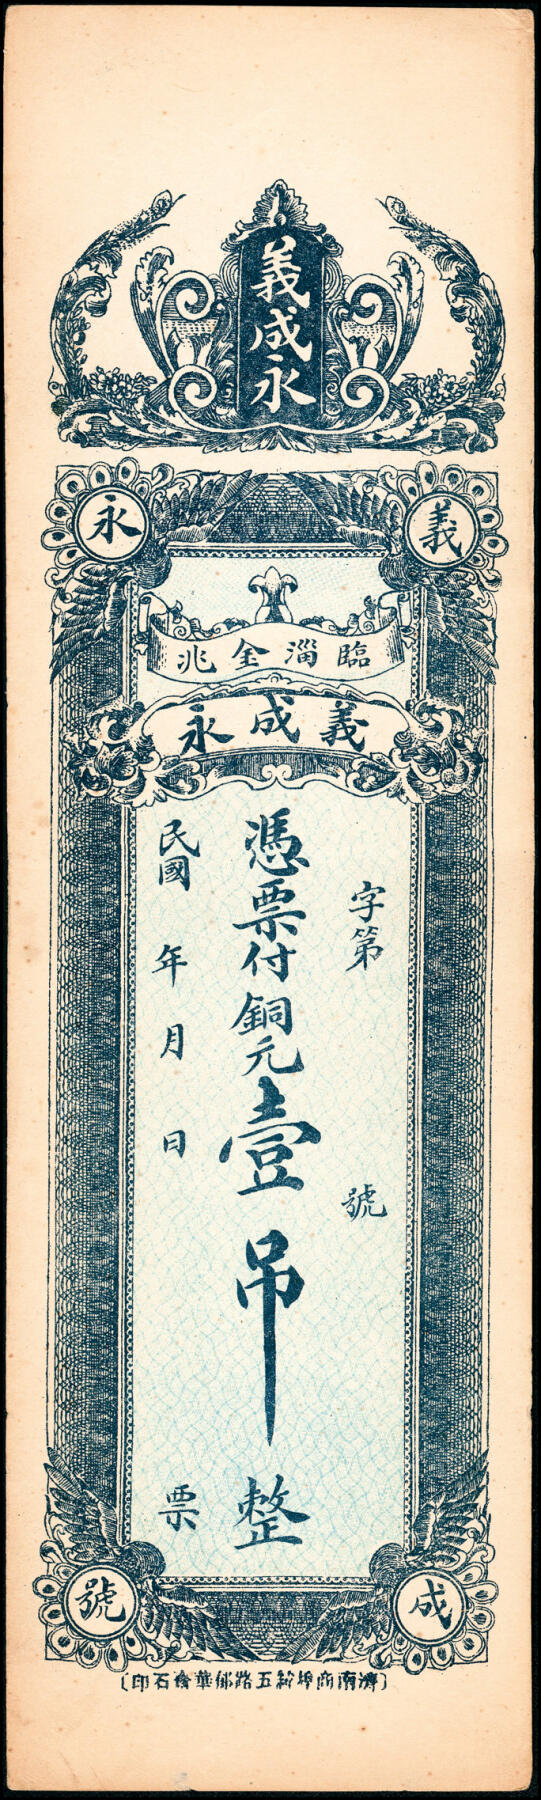 義成永
義
永
臨淄金兆
義成永
字第 號
憑票付銅元壹吊整
民國 年 月 日 票
成
號
濟南商埠緯五路華石印